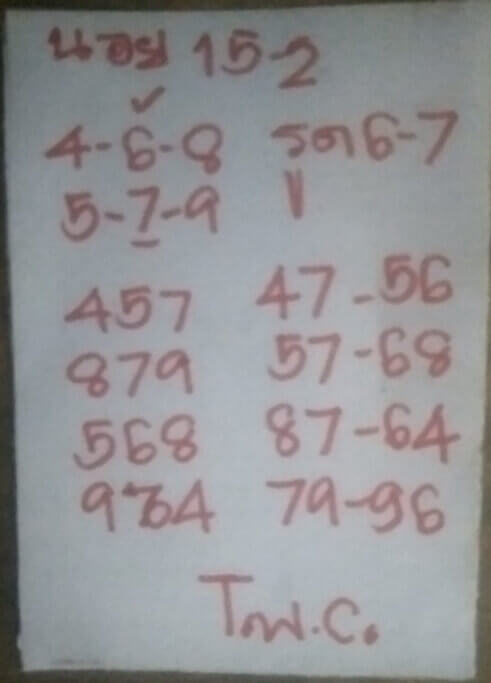 นอย 15-2
4-6-8 รูด 6-7
5-7-9
457 47-56
879 57-68
568 87-64
964 79-96
T.พ.C.